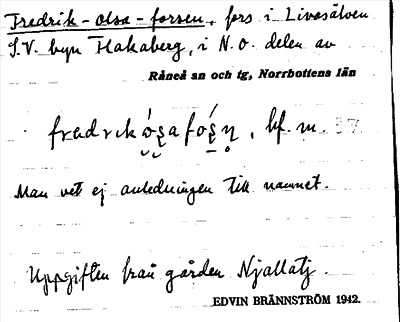 Fredrik-olsa-forsen, fors i Livasälven
S.V. byn Flakaberg, i N.O. delen av
Råneå sn och tg, Norrbottens län
bf. m. 37
Man vet ej anledningen till namnet.
Uppgiften från gården Njallatj.
EDVIN BRÄNNSTRÖM 1942.